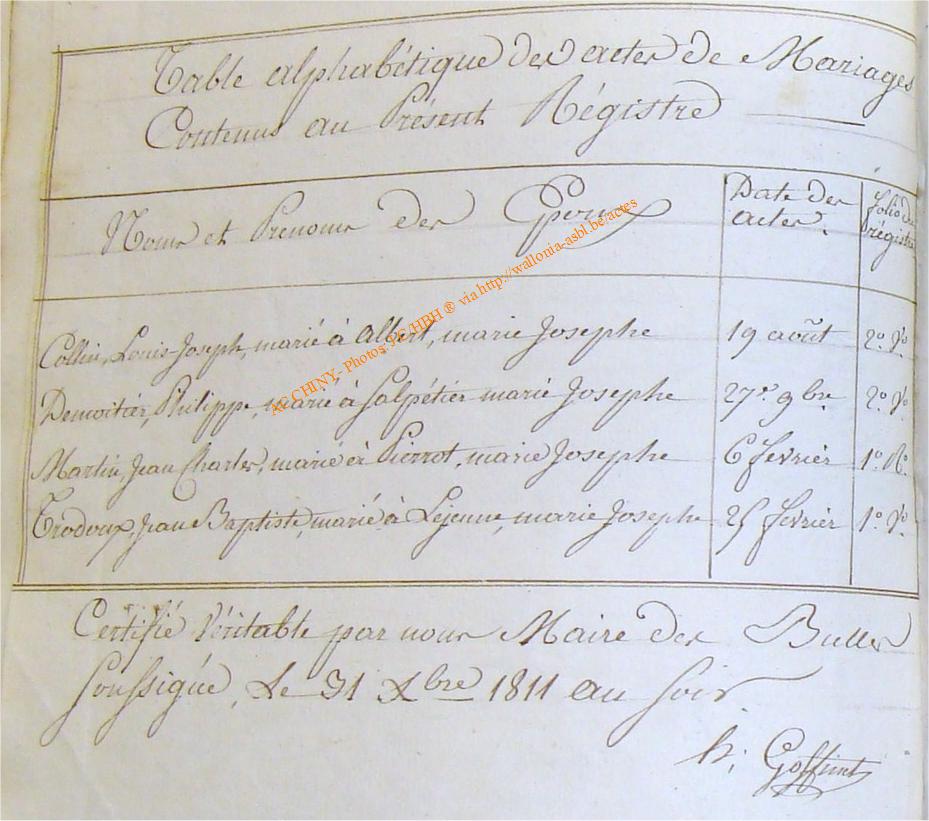 Table alphabétique des actes de Mariages
Contenus au Présent Régistre
Noms et Prenoms des Epoux
Date des
actes.
folio du
régistre
Collin, Louis-Joseph, marié à Albert, marie Josephe 19 août 2º. Vº.
Demoitiér, Philippe, marié à Salpétiér marie Josephe 27. 9bre 2º. Vº
Martin, Jean Charles, marié à Pierrot, marie Josephe 6 fevriér 1º. Rº.
Trodoux, Jean Baptiste, marié à Léjeune, marie Josephe 25 fevriér 1º. Vº
Certifié Véritable par nous Maire des Bulles
soussigné, Le 31 Xbre 1811 au soir
h. Goffinet
AC CHINY- Photos: PG/HBH ® via http://wallonia-asbl.be/actes